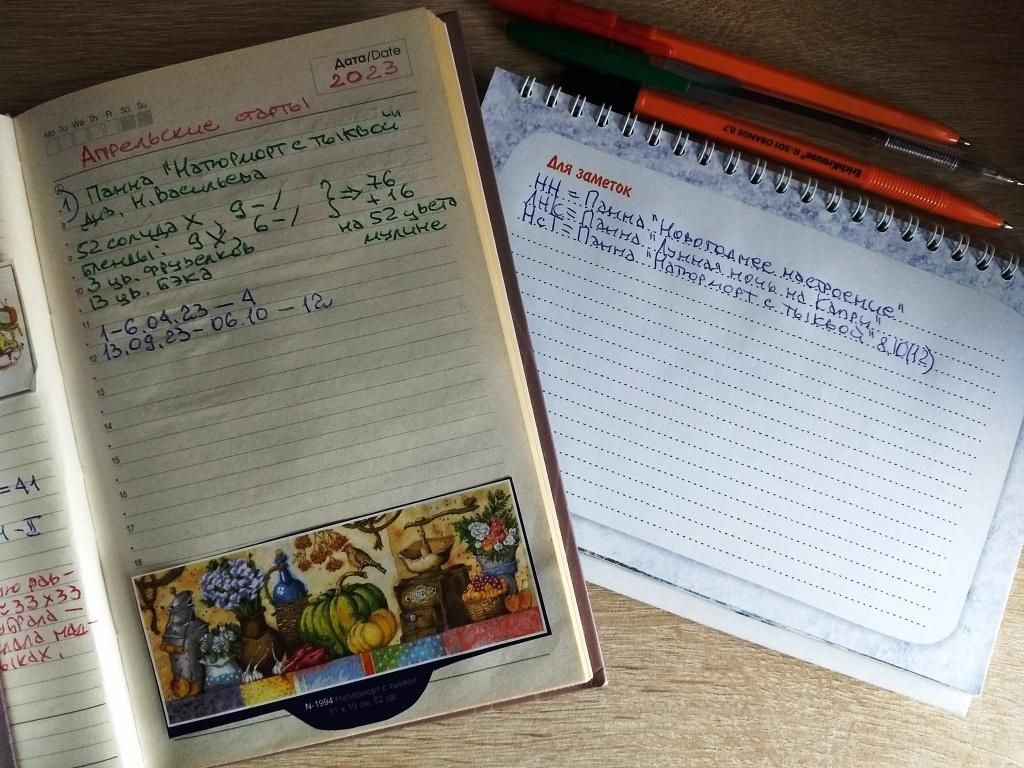 Дата/Date
2023
Mo Tu We Th Fr Sa Su
Апрельские старты
1) Панна "Натюрморт с тыквой"
диз. Н. Васильева
52 солида X 9-1
бленды: 9 X, 6-1
} ⇒ 76
+ 16
на 52 цвета
мулине
3 цв. фрузелков
13 цв. бэка
1-6.04.23 – 4
13.09.23 – 06.10 – 12
8
9
10
11
12
13
14
15
16
17
18
N-1994 Натюрморт с тыквой
51 x 19 см, 52 цв.
=41
33 x 33
ErichKrause® R-301 ORANGE 0.7
Для заметок
НН = Панна "Новогоднее настроение"
ЛНК = Панна "Лунная ночь на Капри"
НсТ = Панна "Натюрморт с тыквой" 8,10(12)